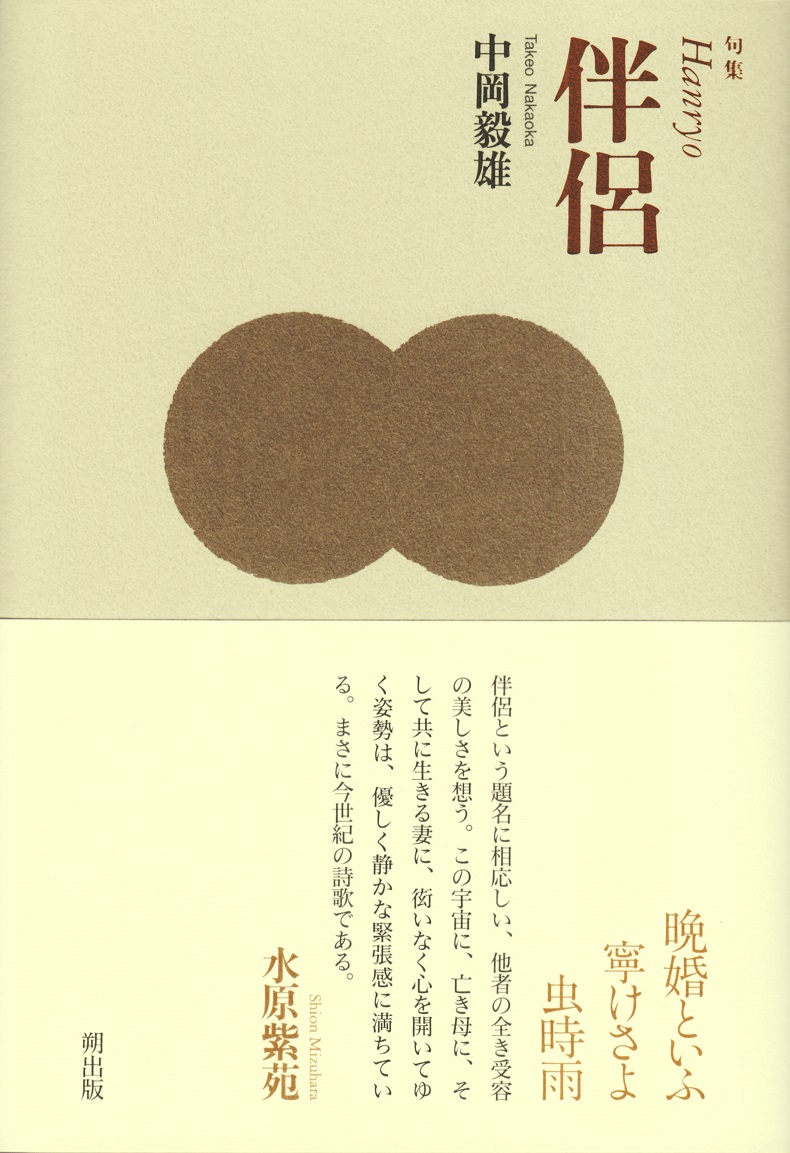 句集
Hanryo
伴侶
Takeo Nakaoka
中岡毅雄
晩婚といふ
寧けさよ
虫時雨
伴侶という題名に相応しい、他者の全き受容
の美しさを想う。この宇宙に、亡き母に、そ
して共に生きる妻に、衒いなく心を開いてゆ
く姿勢は、優しく静かな緊張感に満ちてい
る。まさに今世紀の詩歌である。
Shion Mizuhara
水原紫苑
朔出版